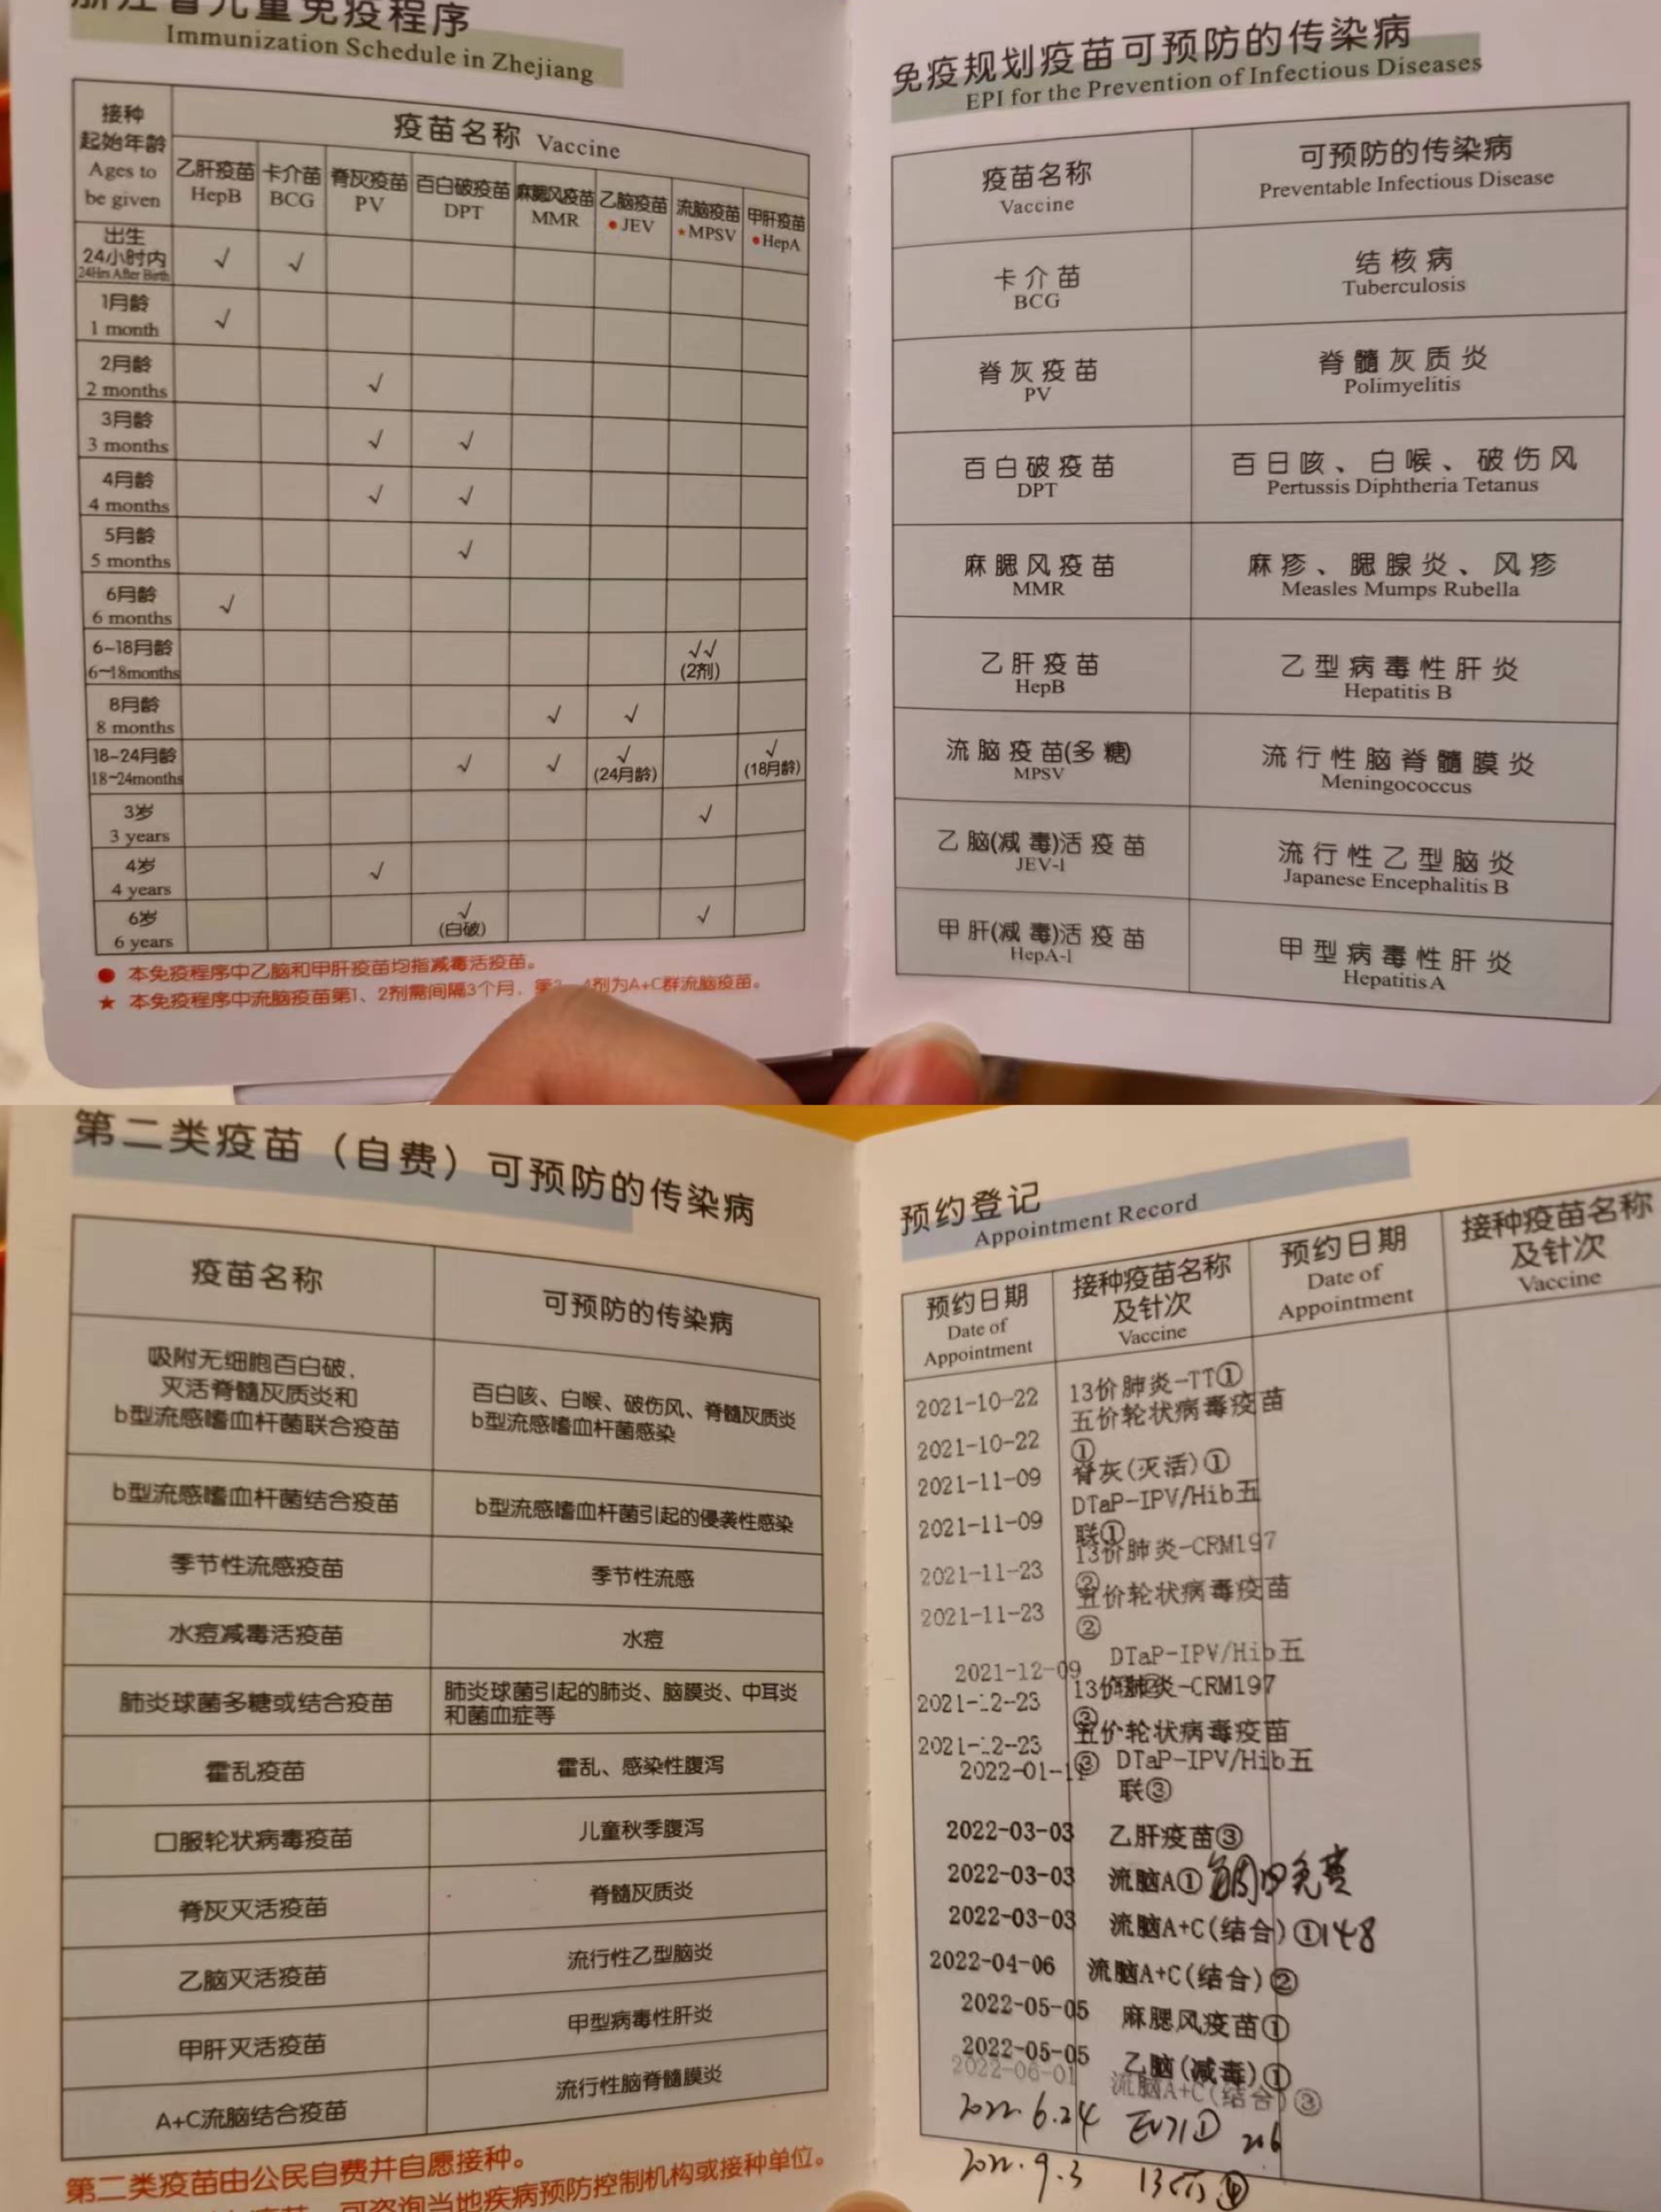 浙江省儿童免疫程序
Immunization Schedule in Zhejiang
接种
起始年龄
Ages to
be given
疫苗名称 Vaccine
乙肝疫苗 卡介苗 脊灰疫苗 百白破疫苗 麻腮风疫苗 乙脑疫苗 流脑疫苗 甲肝疫苗
HepB BCG PV DPT MMR ●JEV ★MPSV ●HepA
出生
24小时内
24Hrs After Birth √ √
1月龄
1 month √
2月龄
2 months √
3月龄
3 months √ √
4月龄
4 months √ √
5月龄
5 months √
6月龄
6 months √
6-18月龄 √√
6~18months (2剂)
8月龄
8 months √ √
18-24月龄 √ √ √ √
18~24months (24月龄) (18月龄)
3岁
3 years √
4岁
4 years √
6岁 √ √
6 years (白破)
● 本免疫程序中乙脑和甲肝疫苗均指减毒活疫苗。
★ 本免疫程序中流脑疫苗第1、2剂需间隔3个月，第3 4剂为A+C群流脑疫苗。
免疫规划疫苗可预防的传染病
EPI for the Prevention of Infectious Diseases
疫苗名称 可预防的传染病
Vaccine Preventable Infectious Disease
卡介苗 结核病
BCG Tuberculosis
脊灰疫苗 脊髓灰质炎
PV Polimyelitis
百白破疫苗 百日咳、白喉、破伤风
DPT Pertussis Diphtheria Tetanus
麻腮风疫苗 麻疹、腮腺炎、风疹
MMR Measles Mumps Rubella
乙肝疫苗 乙型病毒性肝炎
HepB Hepatitis B
流脑疫苗(多糖) 流行性脑脊髓膜炎
MPSV Meningococcus
乙脑(减毒)活疫苗 流行性乙型脑炎
JEV-l Japanese Encephalitis B
甲肝(减毒)活疫苗 甲型病毒性肝炎
HepA-l Hepatitis A
第二类疫苗（自费）可预防的传染病
疫苗名称 可预防的传染病
吸附无细胞百白破，
灭活脊髓灰质炎和 百日咳、白喉、破伤风、脊髓灰质炎
b型流感嗜血杆菌联合疫苗 b型流感嗜血杆菌感染
b型流感嗜血杆菌结合疫苗 b型流感嗜血杆菌引起的侵袭性感染
季节性流感疫苗 季节性流感
水痘减毒活疫苗 水痘
肺炎球菌多糖或结合疫苗 肺炎球菌引起的肺炎、脑膜炎、中耳炎
和菌血症等
霍乱疫苗 霍乱、感染性腹泻
口服轮状病毒疫苗 儿童秋季腹泻
脊灰灭活疫苗 脊髓灰质炎
乙脑灭活疫苗 流行性乙型脑炎
甲肝灭活疫苗 甲型病毒性肝炎
A+C流脑结合疫苗 流行性脑脊髓膜炎
第二类疫苗由公民自费并自愿接种。
可咨询当地疾病预防控制机构或接种单位。
预约登记
Appointment Record
预约日期 接种疫苗名称 预约日期 接种疫苗名称
Date of 及针次 Date of 及针次
Appointment Vaccine Appointment Vaccine
2021-10-22 13价肺炎-TT①
2021-10-22 五价轮状病毒疫苗
①
2021-11-09 脊灰(灭活)①
2021-11-09 DTaP-IPV/Hib五
联①
2021-11-23 13价肺炎-CRM197
②
2021-11-23 五价轮状病毒疫苗
②
2021-12-09 DTaP-IPV/Hib五
2021-12-23 13价肺炎-CRM197
③
2021-12-23 五价轮状病毒疫苗
③
2022-01-11 DTaP-IPV/Hib五
联③
2022-03-03 乙肝疫苗③
2022-03-03 流脑A① 免费
2022-03-03 流脑A+C(结合)①148
2022-04-06 流脑A+C(结合)②
2022-05-05 麻腮风疫苗①
2022-05-05 乙脑(减毒)①
2022-06-01 流脑A+C(结合)③
2022.6.24 EV71① 206
2022.9.3 13价④